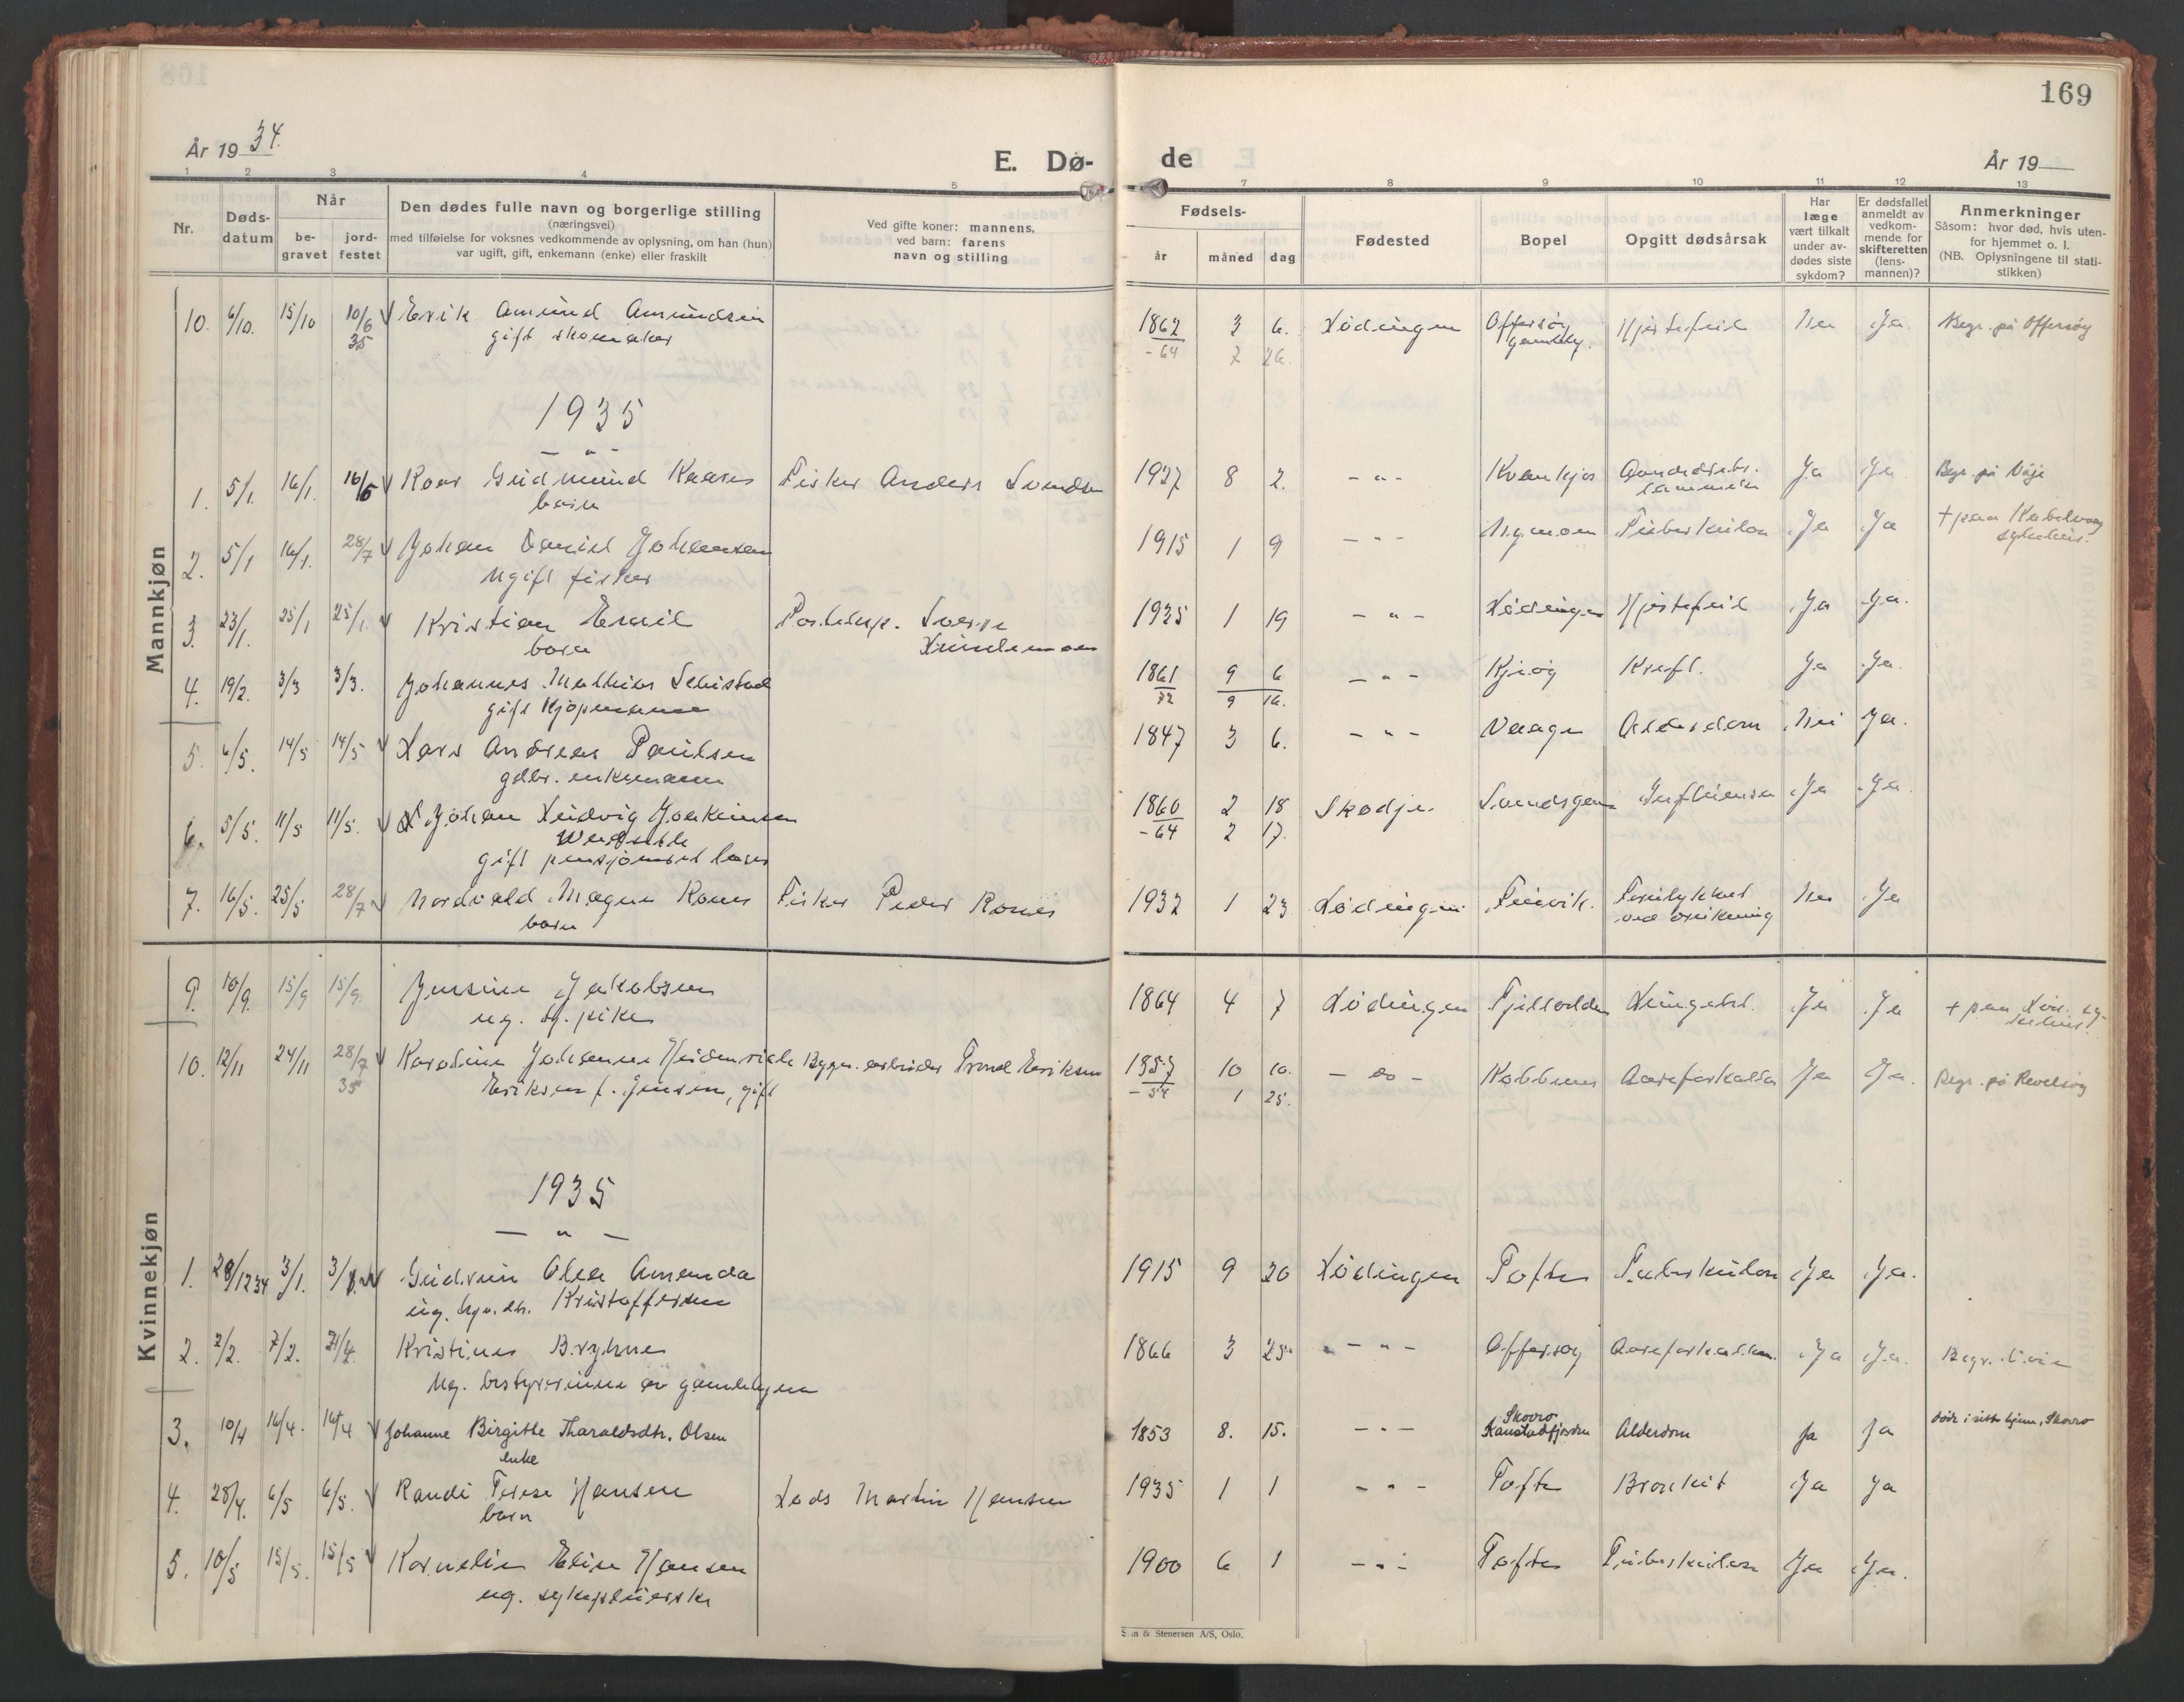 169
År 1934.
E. Dø-
de
År 19
1 2 3 4 5 7 8 9 10 11 12 13
Nr.
Døds-
datum
Når
be-
gravet
jord-
festet
Den dødes fulle navn og borgerlige stilling
(næringsvei)
med tilføielse for voksnes vedkommende av oplysning, om han (hun)
var ugift, gift, enkemann (enke) eller fraskilt
Ved gifte koner: mannens,
ved barn: farens
navn og stilling
Fødsels-
år måned dag
Fødested
Bopel
Opgitt dødsårsak
Har
læge
vært tilkalt
under av-
dødes siste
sykdom?
Er dødsfallet
anmeldt av
vedkom-
mende for
skifteretten
(lens-
mannen)?
Anmerkninger
Såsom: hvor død, hvis uten-
for hjemmet o. l.
(NB. Oplysningene til stati-
stikken)
Mannkjøn
10. 6/10. 15/10 10/6 Erik Amund Amundsen 1862 3 6. Lødingen Offersøy Hjertefeil Nei Ja. Begr. på Offersøy
35 gift skomaker -64 7 26. gamlehj.
1935
- " -
1. 5/1. 16/1. 16/6 Roar Gudmund Kaares Fisker Anders Svendsen 1927 8 2. - " - Kvankjos Ja Ja Begr. på Våje
barn
2. 5/1 16/1. 28/7 Johan Daniel Johansen 1915 1 9 - " - Nymoen Tuberkulose Ja Ja + paa Kabelvaag
Ugift fisker sykehus.
3. 23/1. 25/1 25/1. Kristian Emil Sverre 1935 1 19 - " - Lødingen Hjertefeil Ja Ja.
barn
4. 19/2. 3/3 3/3. Johannes Mathias Seristad 1861 9 6 - " - Kjeøy Kreft. Ja Ja.
gift kjøpmann 72 9 16.
5. 6/5. 14/5 14/5 Lars Andreas Paulsen 1847 3 6. - " - Vaage Alderdom Nei Ja.
gdbr. enkemann
6. 5/5. 11/5 11/5. Johan Ludvig Joakimsen 1860 2 18 Skodje Influensa Ja Ja.
gift pensjonert lærer -64 2 17.
7. 16/5. 25/5 28/7 Nordvald Magne Rones Fisker Peder Rones 1932 1 23 Lødingen Forulykket Nei Ja
barn ved drukning
Kvinnekjøn
9. 10/9. 15/9 15/9. Jensine Jakobsen 1864 4 7 Lødingen Fjellodden Ja Ja + paa Lød. sy-
ug. tj. pike kehus.
10. 12/11 24/11 28/7 Karoline Johanne Heidenrich Bygn. arbeider Trond Eriksen 1857 10 10. - do - Kobbnes Aareforkalkn Ja Ja. Begr. på Revelsøy
35 Eriksen f. Jensen, gift -54 1 25.
1935
- " -
1. 28/12 34 3/1. 3/1. Gudrun Olea Amanda 1915 9 20 Lødingen Tofte Tuberkulose Ja Ja.
ug. Kristoffersen
2. 2/2. 7/2. 21/4 Kristine Bryhne 1866 3 25 - " - Offersøy Aareforkalkn. Ja Ja.
Ug. bestyrerinne av gamlehjem
3. 10/4 16/4. 16/4 Johanne Birgitte Tharaldsdtr. Olsen 1853 8. 15. - " - Skovro Alderdom Ja Ja døde i sitt hjem, Skovro
enke Kanstadfjorden
4. 28/4. 6/5 6/5. Randi Terese Hansen Lods Martin Hansen 1935 1 1 - " - Tofte Bronkit Ja Ja
barn
5. 10/5 15/5. 15/5 Kornelie Elise Hansen 1900 6 1 - " - Tofte Tuberkulose Ja Ja.
ug. sykepleierske
& Stenersen A/S, Oslo.